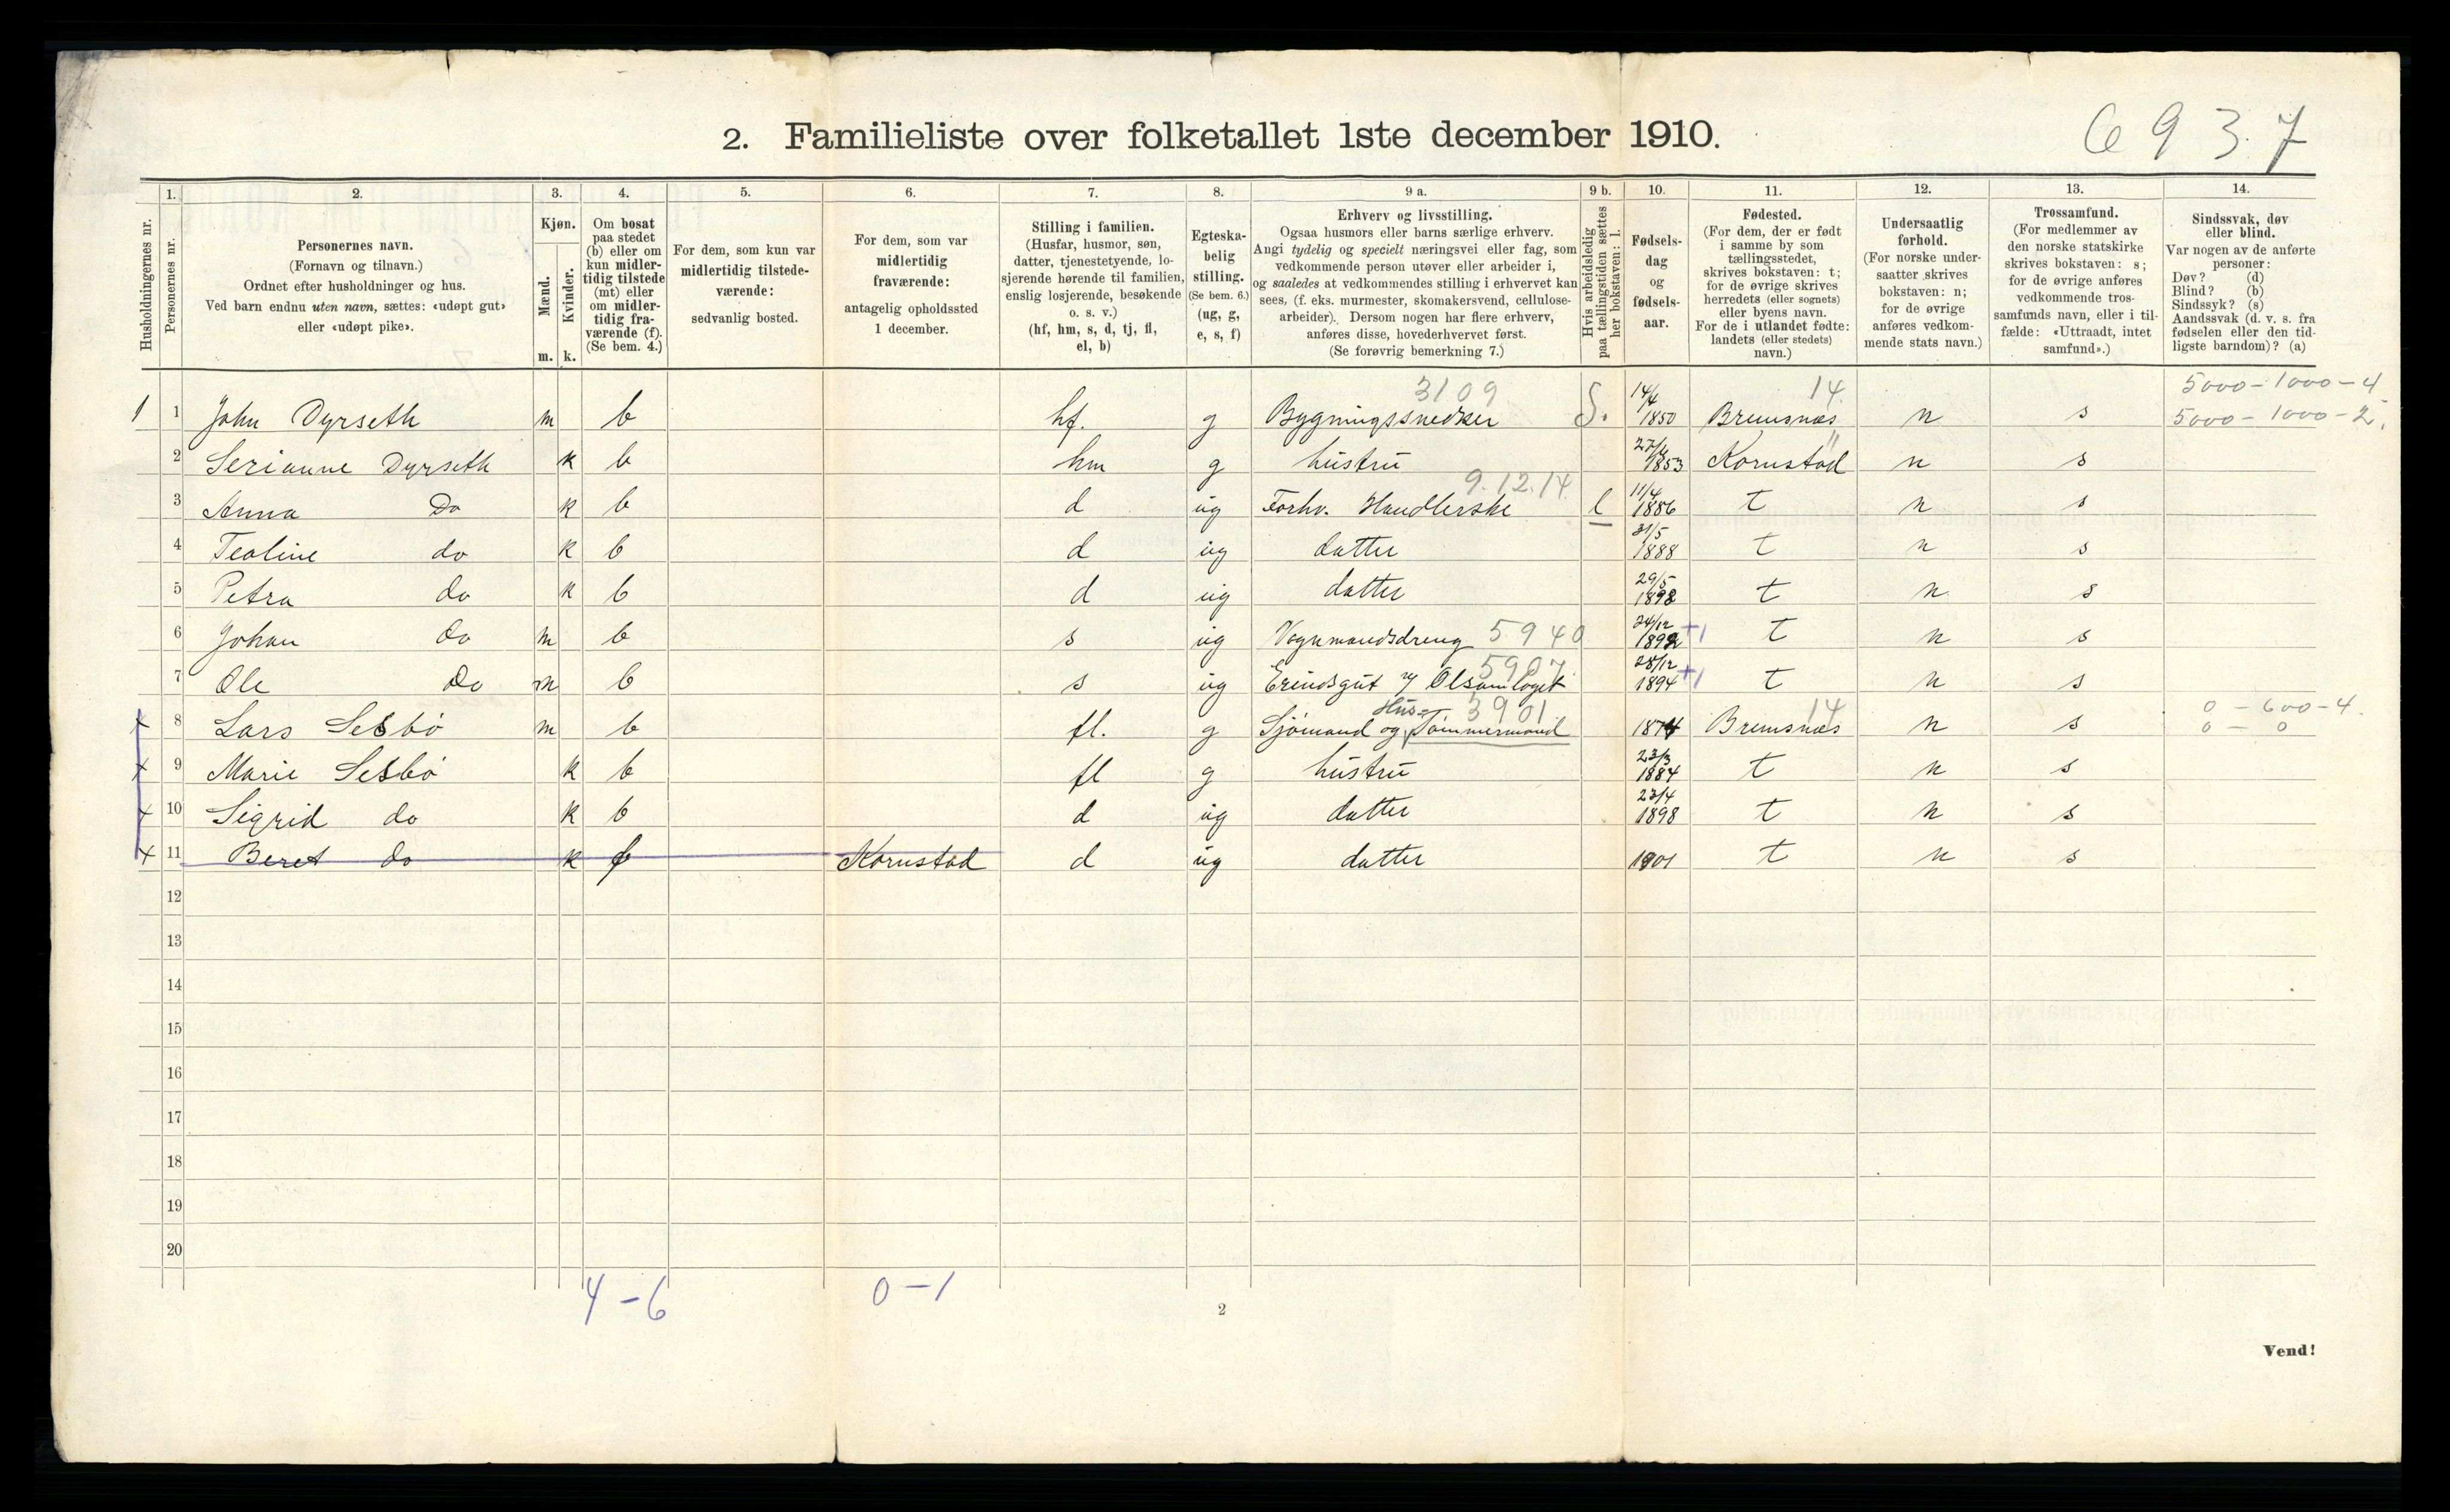 6 9 3. 7
2. Familieliste over folketallet 1ste december 1910.
1. 2. 3. 4. 5. 6. 7. 8. 9 a. 9 b. 10. 11. 12. 13. 14.
Husholdningernes nr.
Personernes nr.
Personernes navn.
(Fornavn og tilnavn.)
Ordnet efter husholdninger og hus.
Ved barn endnu uten navn, sættes: «udøpt gut»
eller «udøpt pike».
Kjøn.
Mænd.
Kvinder.
m. k.
Om bosat
paa stedet
(b) eller om
kun midler-
tidig tilstede
(mt) eller
om midler-
tidig fra-
værende (f).
(Se bem. 4.)
For dem, som kun var
midlertidig tilstede-
værende:
sedvanlig bosted.
For dem, som var
midlertidig
fraværende:
antagelig opholdssted
1 december.
Stilling i familien.
(Husfar, husmor, søn,
datter, tjenestetyende, lo-
sjerende hørende til familien,
enslig losjerende, besøkende
o. s. v.)
(hf, hm, s, d, tj, fl,
el, b)
Egteska-
belig
stilling.
(Se bem. 6.)
(ug, g,
e, s, f)
Erhverv og livsstilling.
Ogsaa husmors eller barns særlige erhverv.
Angi tydelig og specielt næringsvei eller fag, som
vedkommende person utøver eller arbeider i,
og saaledes at vedkommendes stilling i erhvervet kan
sees, (f. eks. murmester, skomakersvend, cellulose-
arbeider). Dersom nogen har flere erhverv,
anføres disse, hovederhvervet først.
(Se forøvrig bemerkning 7.)
Hvis arbeidsledig
paa tællingstiden sættes
her bokstaven: l.
Fødsels-
dag
og
fødsels-
aar.
Fødested.
(For dem, der er født
i samme by som
tællingsstedet,
skrives bokstaven: t;
for de øvrige skrives
herredets (eller sognets)
eller byens navn.
For de i utlandet fødte:
landets (eller stedets)
navn.)
Undersaatlig
forhold.
(For norske under-
saatter skrives
bokstaven: n;
for de øvrige
anføres vedkom-
mende stats navn.)
Trossamfund.
(For medlemmer av
den norske statskirke
skrives bokstaven: s;
for de øvrige anføres
vedkommende tros-
samfunds navn, eller i til-
fælde: «Uttraadt, intet
samfund».)
Sindssvak, døv
eller blind.
Var nogen av de anførte
personer:
Døv? (d)
Blind? (b)
Sindssyk? (s)
Aandssvak (d. v. s. fra
fødselen eller den tid-
ligste barndom)? (a)
3109 14/4 14. 5000 - 1000 - 4
1 1 John Dyrseth m b hf. g Bygningssnedker S. 1850 Bremsnæs n s 5000 - 1000 - 2.
2 Serianne Dyrseth k b hm g hustru 1853 Kornstad n s
9.12.14. 11/4
3 Anna Do k b d ug Forhv. Handlerske l 1886 t n s
31/5
4 Teoline do k b d ug datter 1888 t n s
29/5
5 Petra do k b d ug datter 1892 t n s
24/12
6 Johan do m b s ug Vognmandsdreng 5940 1892 +1 t n s
5907. 28/12
7 Ole Do m b s ug Erindsgut v/ Ølsamlaget 1894 +1 t n s
Hus- 3901 14 0 - 600 - 4.
x 8 Lars Sesbö m b fl. g Sjömand og Tömmermand 1874 Bremsnæs n s 0 - 0
23/3
x 9 Marie Sesbö k b fl g hustru 1884 t n s
23/4
x 10 Sigrid do k b d ug datter 1898 t n s
x 11 Beret do k f Kornstad d ug datter 1901 t n s
12
13
14
15
16
17
18
19
20
4 - 6 0 - 1
2
Vend!